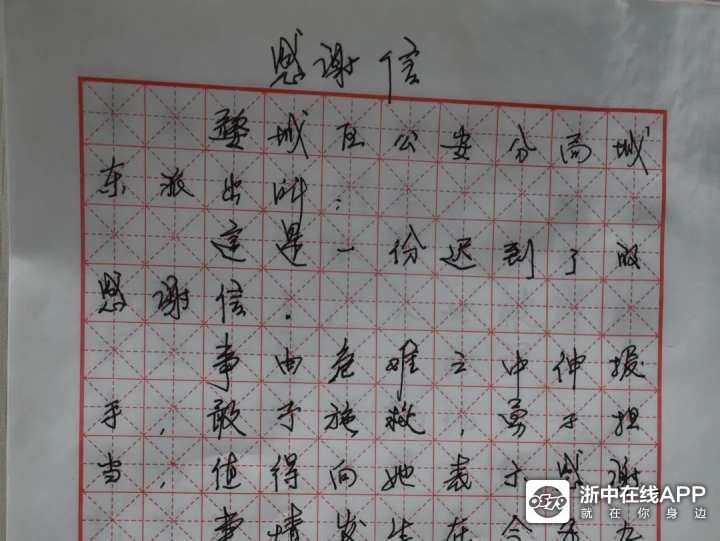 感谢信
婺城区公安分局城
东派出所:
这是一份迟到了的
感谢信.
事由危难之中伸援
手,敢于施救,勇于担
当,值得向她表示感谢
事情发生在今年九
浙中在线APP
就在你身边